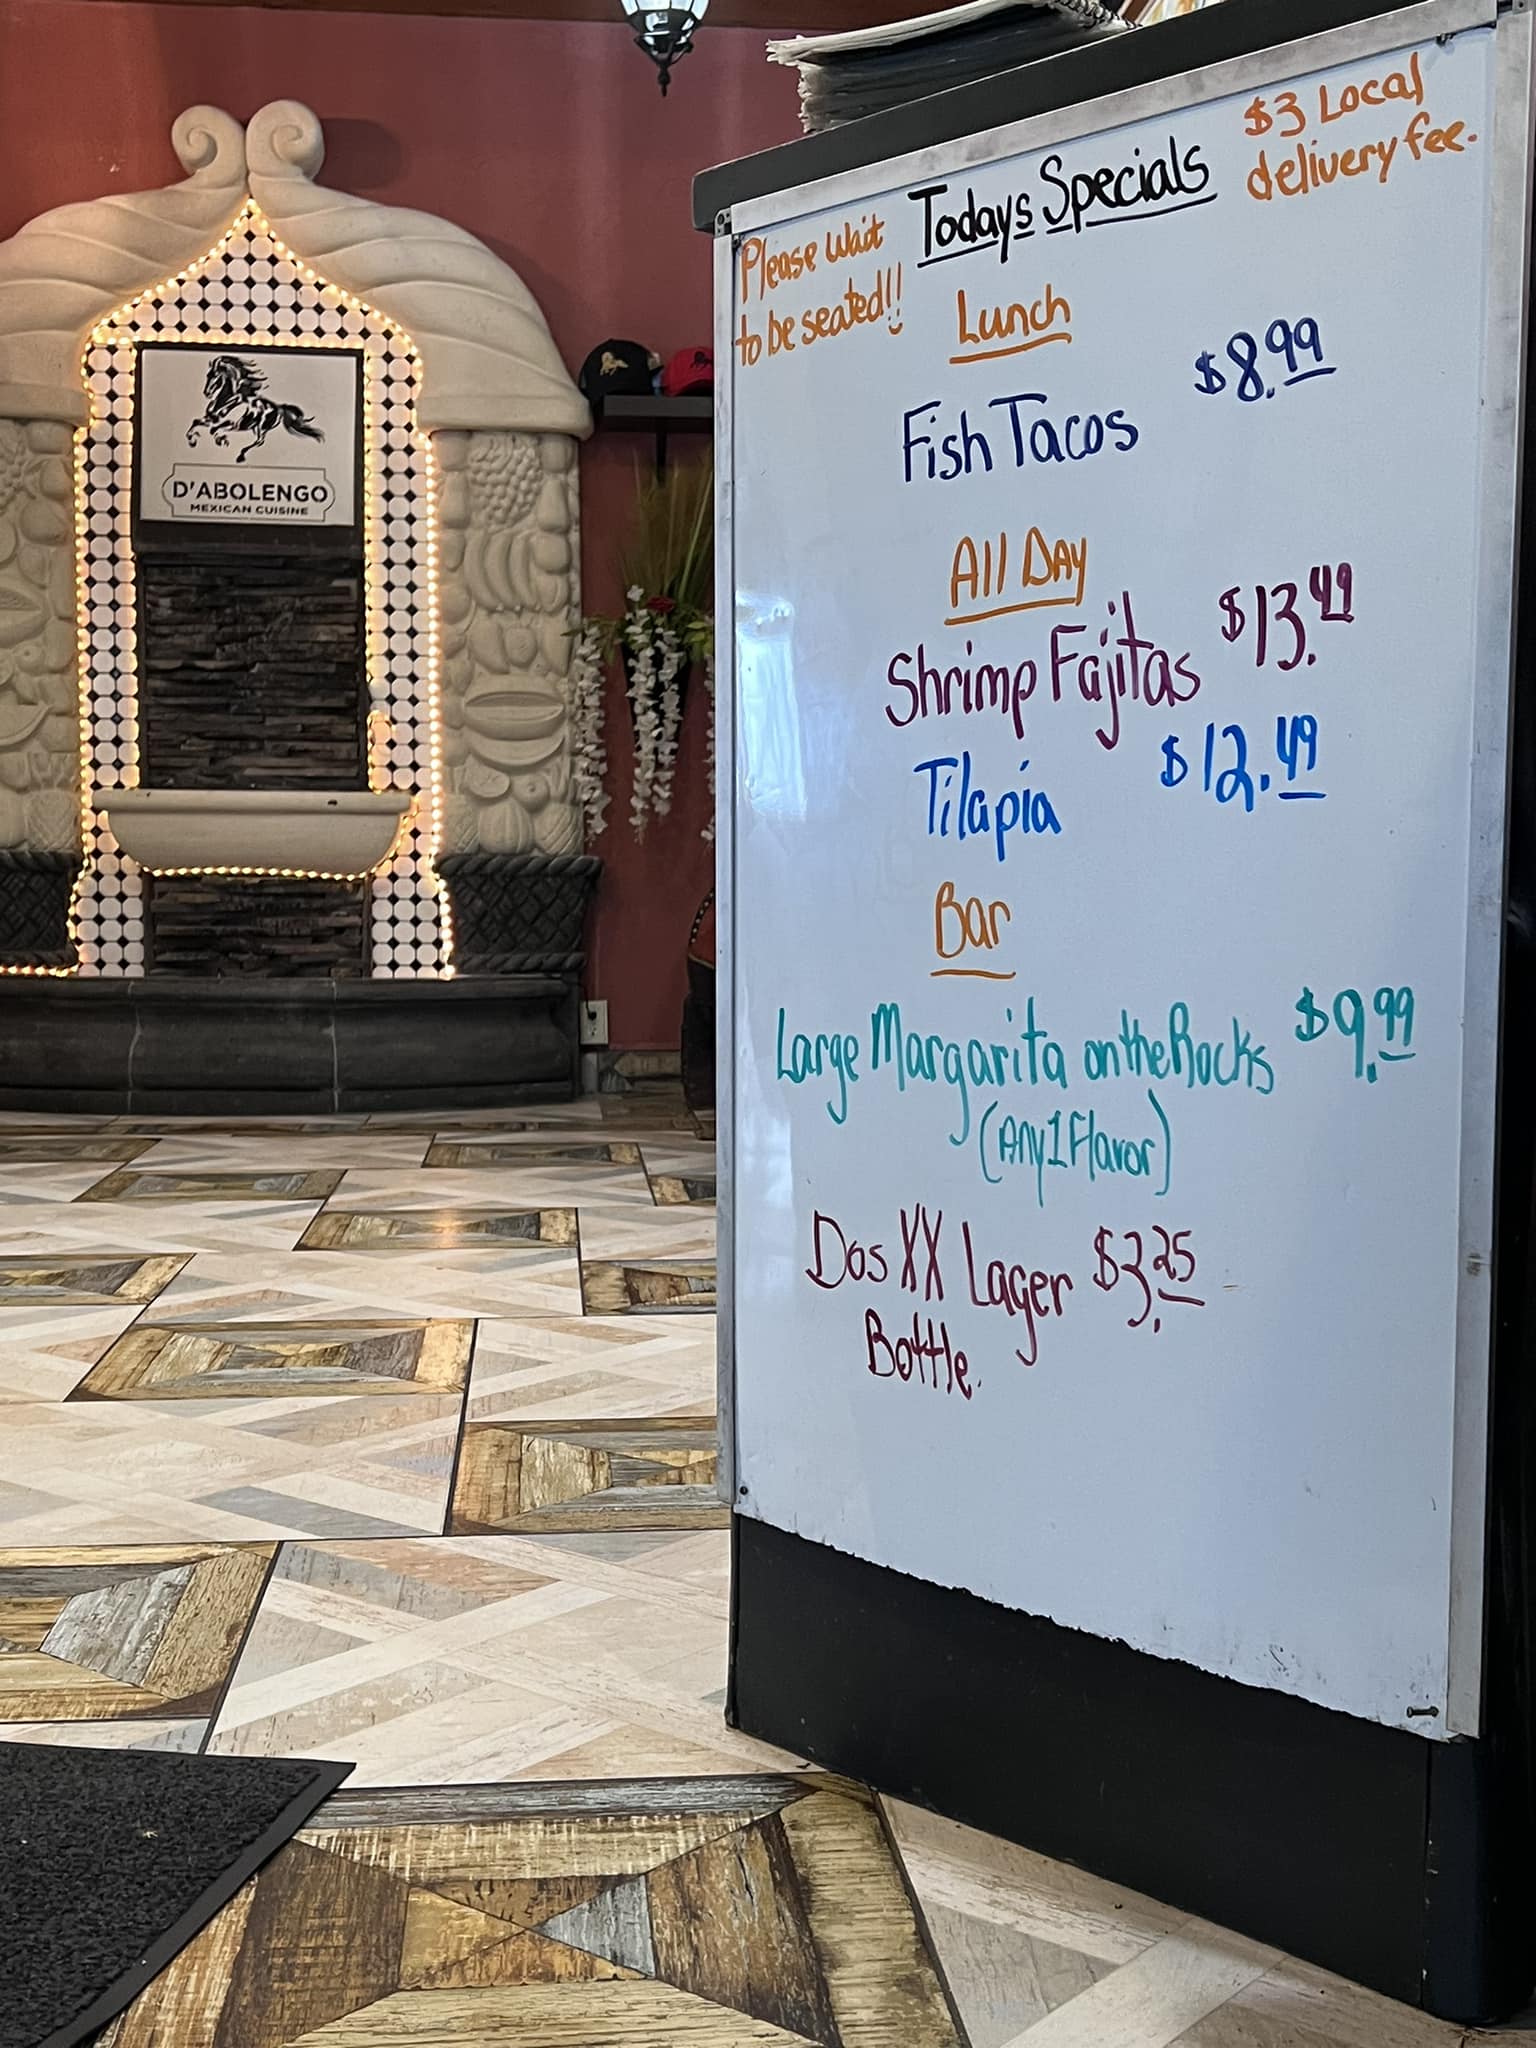 D'ABOLENGO
MEXICAN CUISINE
Todays Specials
$3 Local
delivery fee.
Please Wait
to be seated!!
Lunch
Fish Tacos $8.99
All DAY
Shrimp Fajitas $13.49
Tilapia $12.49
Bar
Large Margarita on the Rocks $9.99
(Any 1 Flavor)
Dos XX Lager $3.25
Bottle.